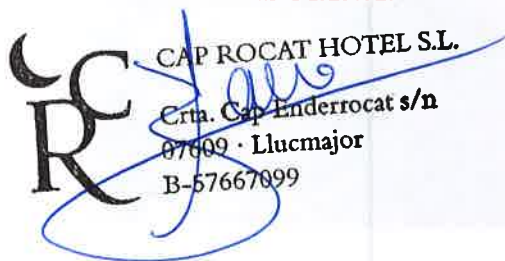 CR
CAP ROCAT HOTEL S.L.
Crta. Cap Enderrocat s/n
07609 · Llucmajor
B-57667099